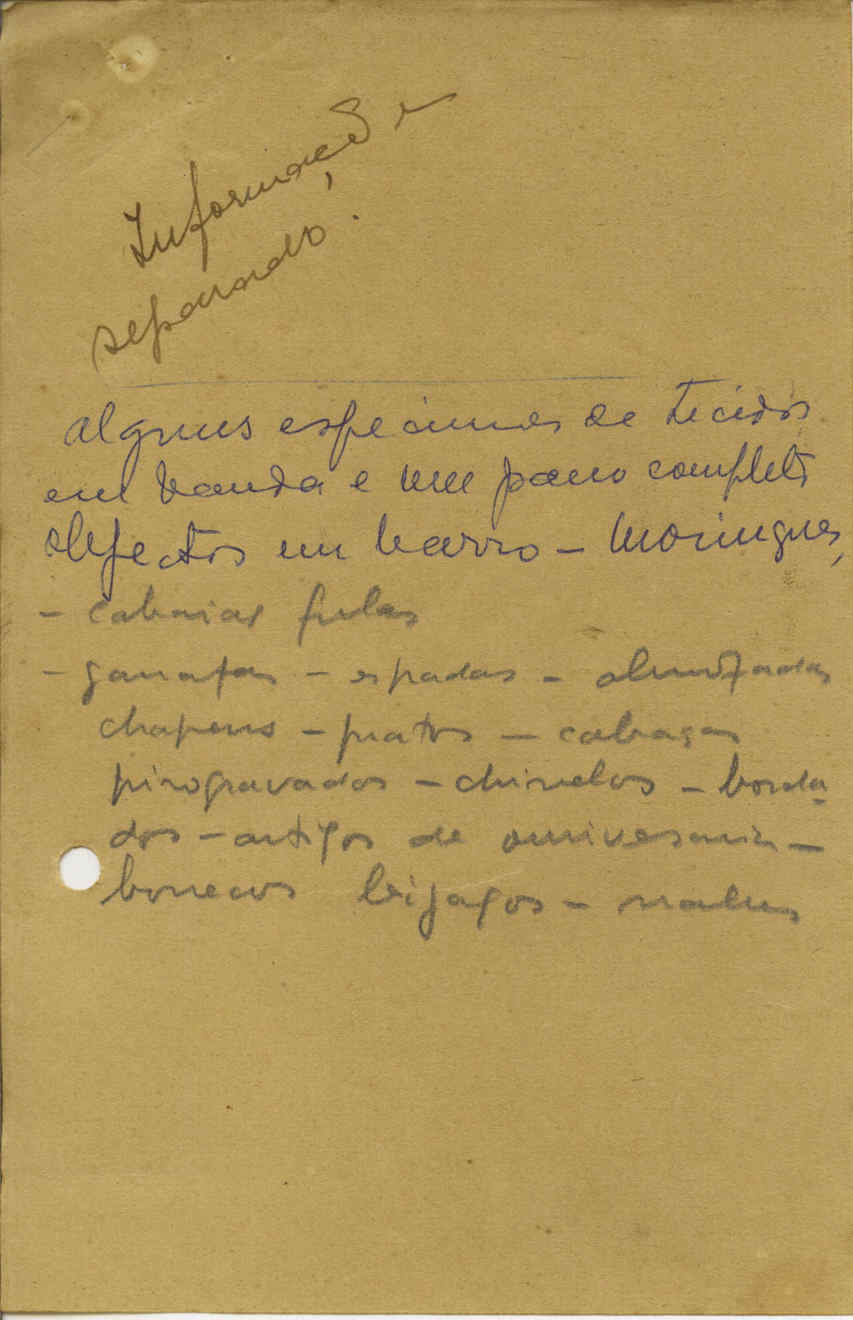 Informação
separado.
Alguns espécimes de tecidos
em banda e um pano completo
Objectos em barro – Moringues,
– cabaias fulas
– garrafas – espadas – almofadas
chapeus – pratos – cabaças
pirogravados – chinelos – borda-
dos – artigos de
bonecos bijagos – nalus